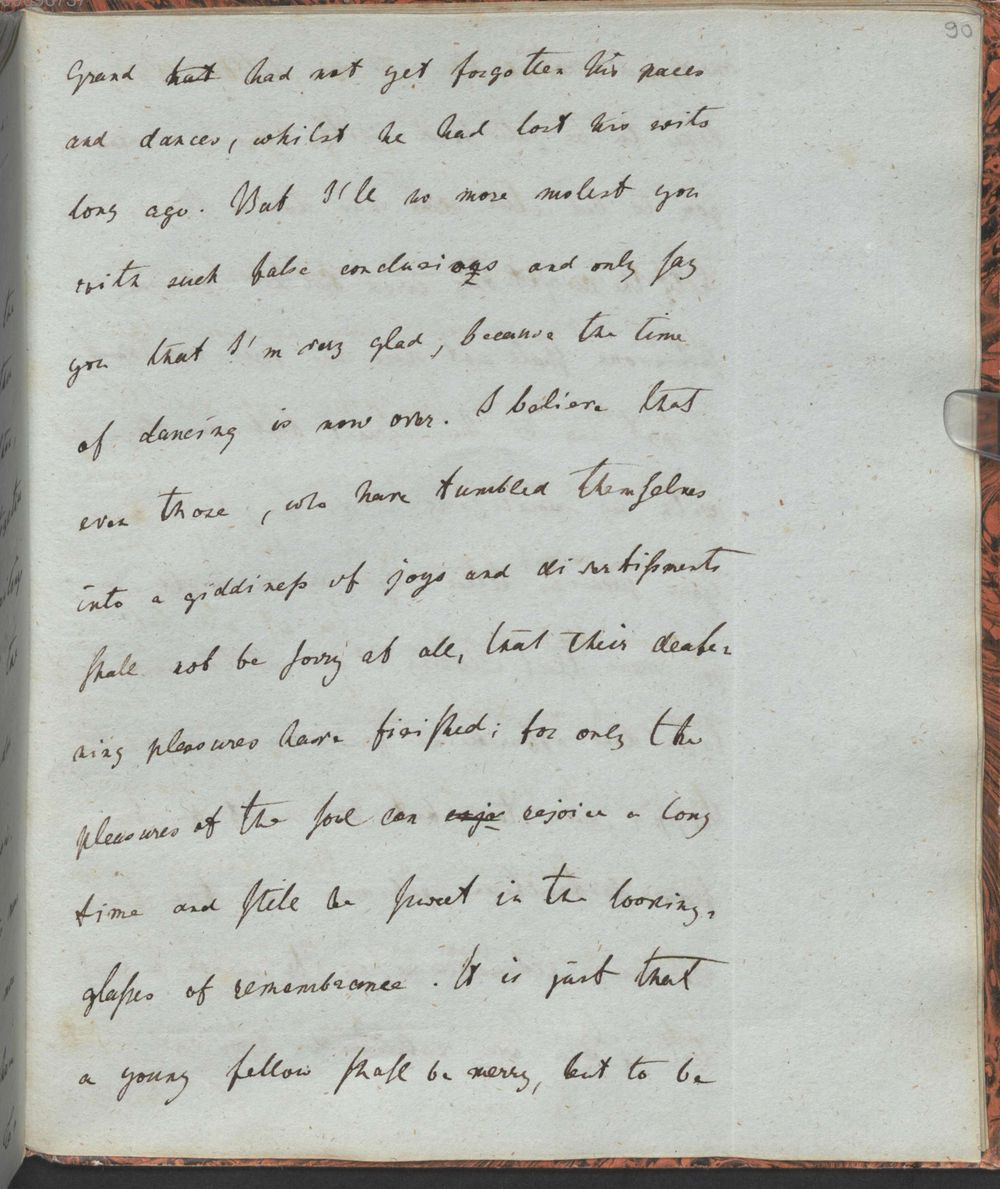 90
Grand hat had not yet forgotten his paces
and dances, whilst he had lost his wits
long ago. But I'll no more molest you
with such false conclusions and only say
you that I'm very glad, because the time
of dancing is now over. I believe that
even those, who have tumbled themselves
into a giddiness of joys and divertissments
shall not be sorry at all, that their deafe=
ning pleasures have finished; for only the
pleasures of the soul can enjo rejoice a long
time and still be sweet in the looking=
glasses of remembrance. It is just that
a young fellow shall be merry, but to be